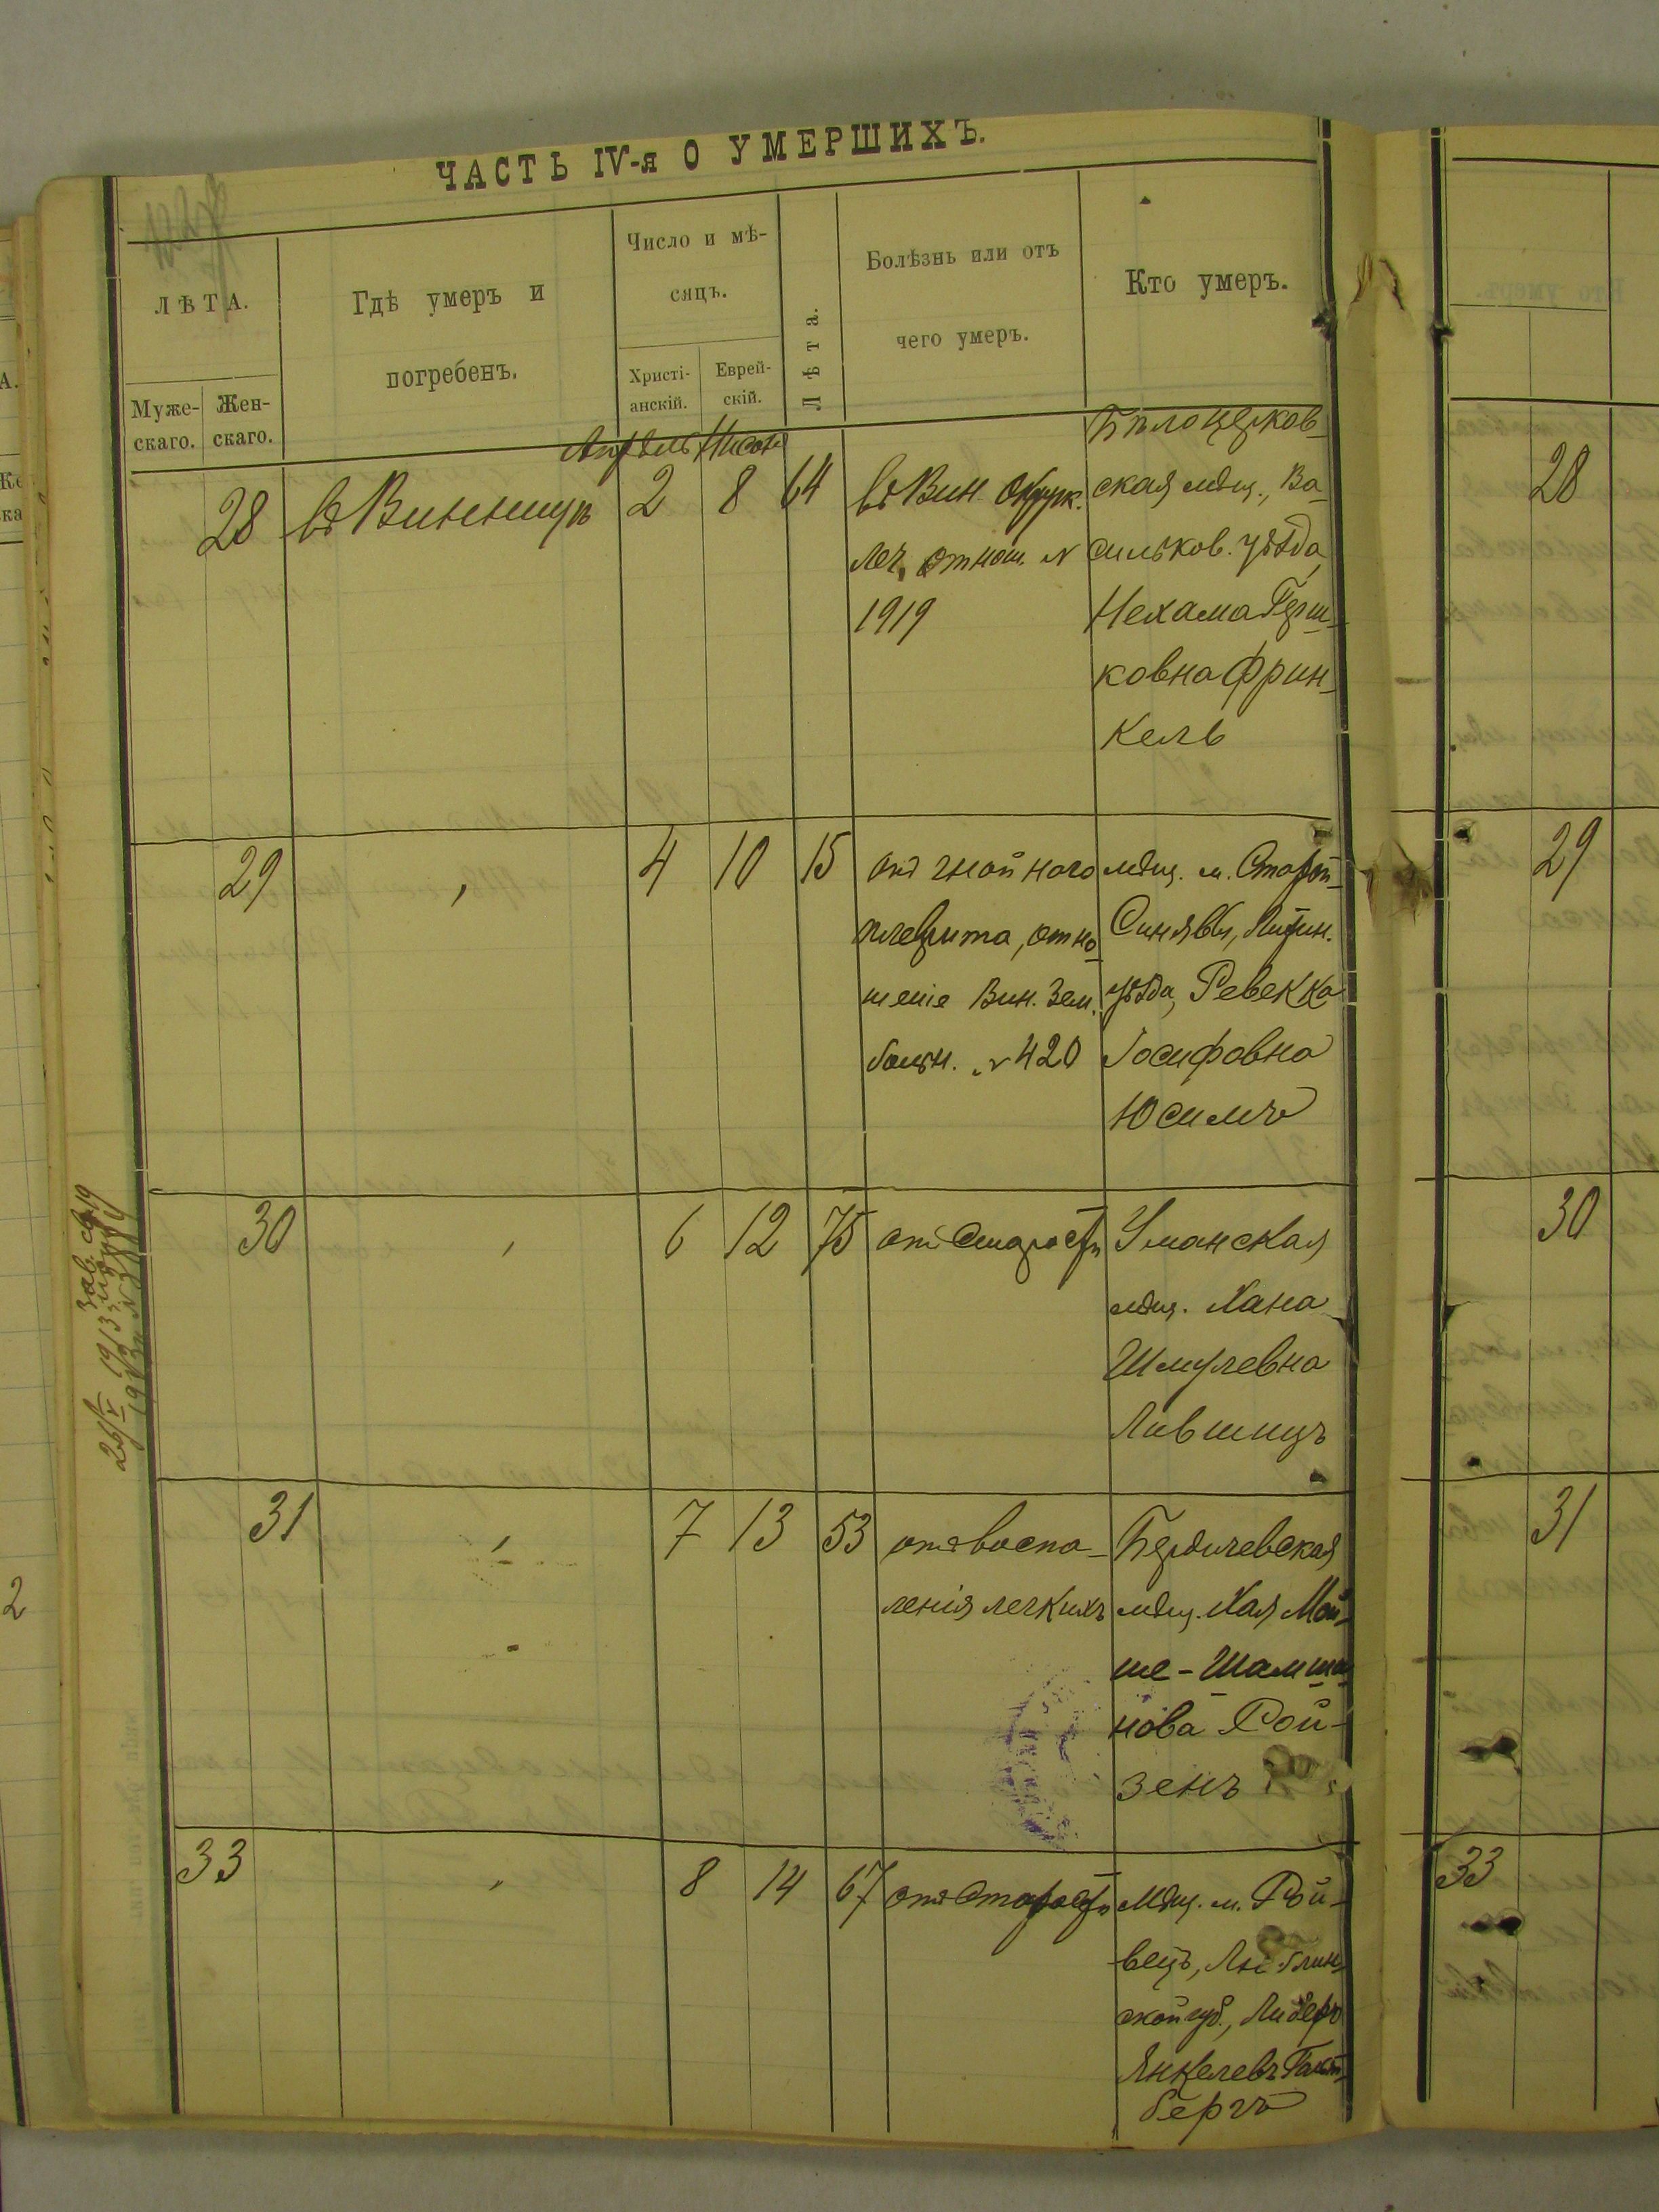 ЧАСТЬ IV-я О УМЕРШИХЪ.
ЛѢТА.
Муже-
скаго.
Жен-
скаго.
Гдѣ умеръ и
погребенъ.
Число и мѣ-
сяцъ.
Христі-
анскій.
Еврей-
скій.
Лѣта.
Болѣзнь или отъ
чего умеръ.
Кто умеръ.
Апрѣль Нисонъ
28
въ Винницѣ
2
8
64
въ Вин. Окруж.
леч. отнош. №
1919
Бѣлоцерков-
ская мѣщ., Ва-
сильков. уѣзда
Нехама Герш-
ковна Френ-
кель
28
29
4
10
15
отъ гнойного
плеврита, отно-
шеніе Вин. Зем.
больн. № 420
мѣщ. м. Старой-
Синявы, Литин.
уѣзда, Ревекка
Іосифовна
Юсимъ
29
30
6
12
75
отъ старости
Уманская
мѣщ. Хана
Шмулевна
Лившицъ
30
31
7
13
53
отъ воспа-
ленія легкихъ
Бердичевская
мѣщ. Хая Мой-
ше-Шамши-
нова Рой-
зенъ
31
33
8
14
67
отъ старости
мѣщ. м.
ской губ., Лейзеръ
Янкелевъ
бергъ
33
2